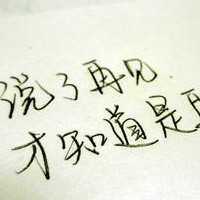 说了再见
才知道是